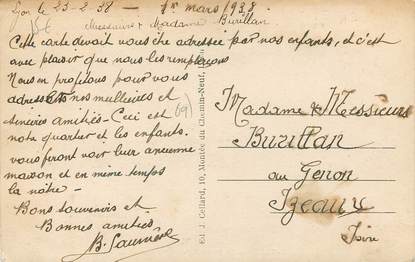 Lyon le 25-2-38 - 1er mars 1938.
Messieurs & Madame Burillan
Cette carte devait vous être adressée par nos enfants, et c'est
avec plaisir que nous les remplaçons
Nous en profitons pour vous
adresser nos meilleures et
sincères amitiés - Ceci est
notre quartier et les enfants
vous feront voir leur ancienne
maison et en même temps
la nôtre -
Bons souvenirs et
Bonnes amitiés
(69)
Edi. J. Cellard, 10, Montée du Chemin-Neuf,
Madame & Messieurs
Burillan
au Genon
Izeaux
Isère